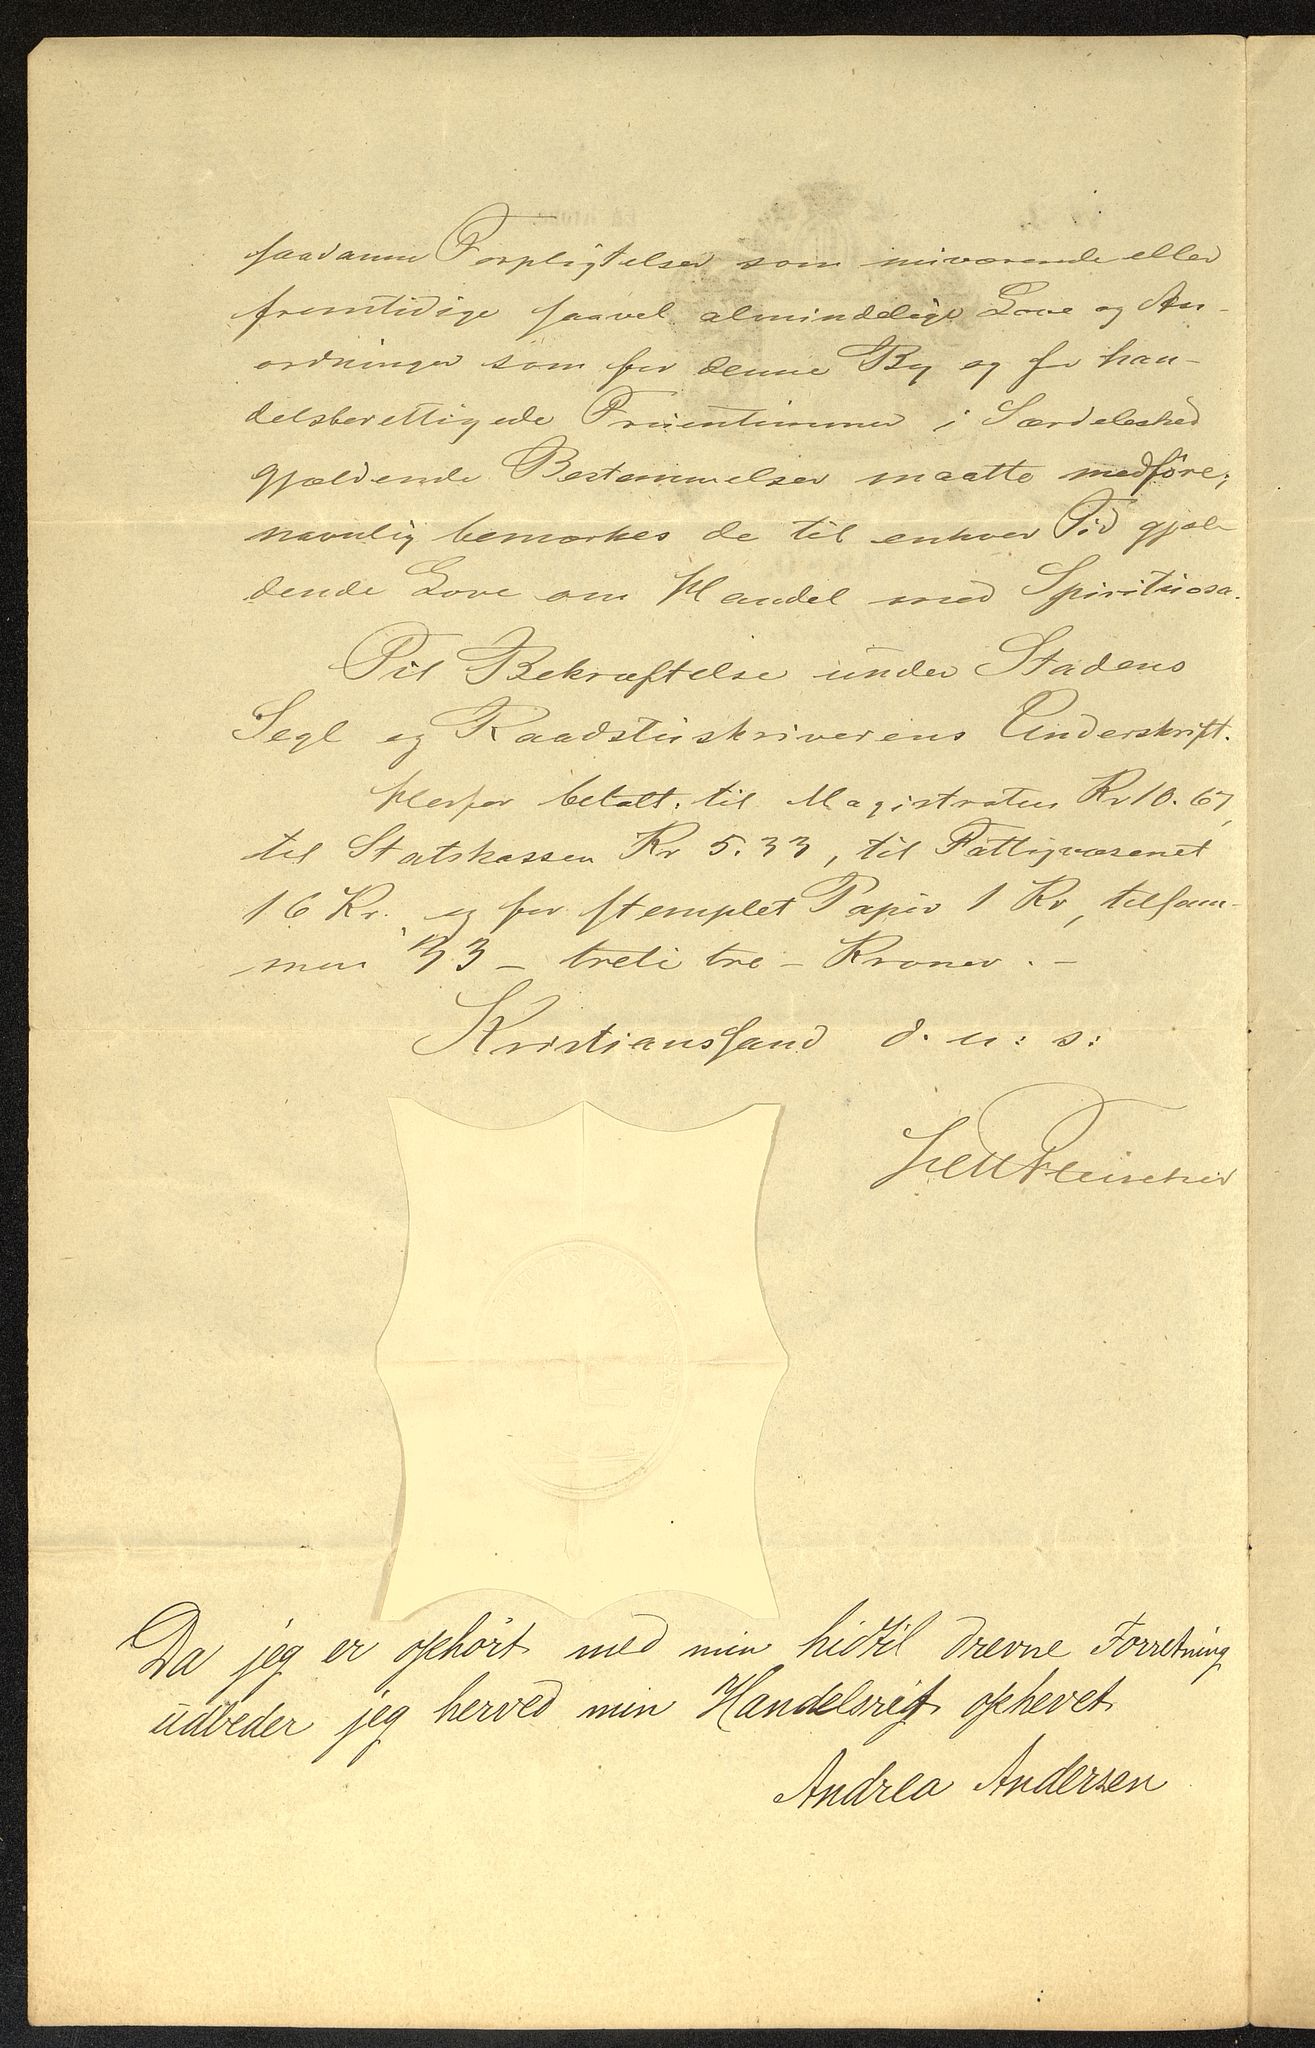 saadanne Forpligtelser som nuværende eller
fremtidige saavel almindelige Love og An-
ordninger som for denne By og for han-
delsberettigede Fruentimmer i Særdeleshed
gjældende Bestemmelser maatte medføre;
navnlig bemærkes de til enhver Tid gjæl-
dende Love om Handel med Spirituosa.
Til Bekræftelse under Stadens
Segl og Raadstuskriverens Underskrift.
Herfor betalt: til Magistraten Kr 10.67,
til Statskassen Kr 5.33, til Fattigvæsenet
16 Kr. og for stemplet Papir 1 Kr, tilsam-
men 33 - treti tre - Kroner. -
Kristianssand d. u: s:
Fleischer
Da jeg er ophört med min hidtil drevne Forretning
udbeder jeg herved min Handelsret ophevet
Andrea Andersen